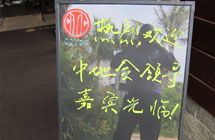 热烈欢迎
中地会领导
嘉宾光临!